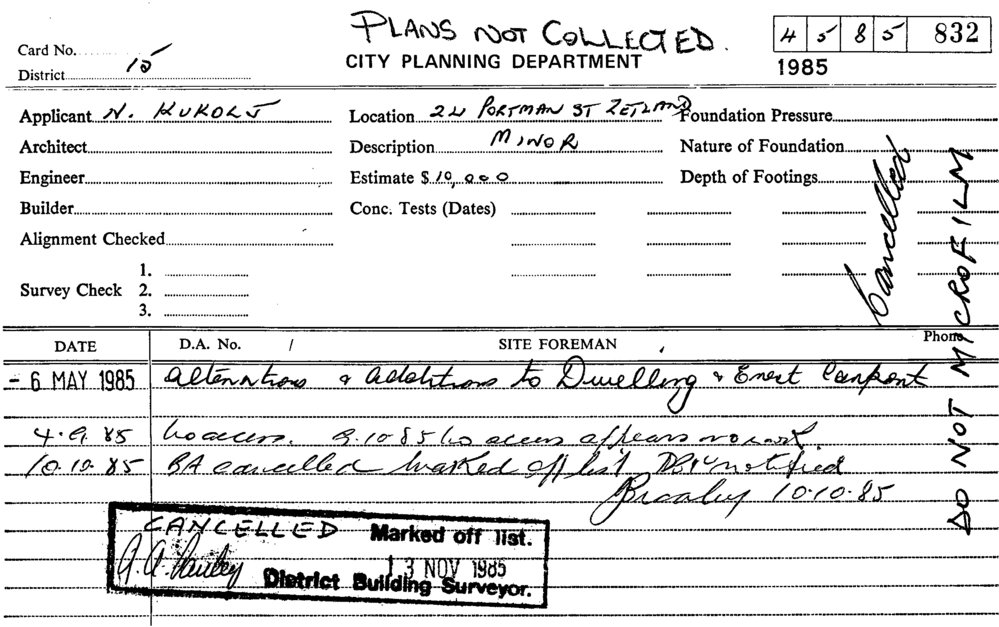 PLANS NOT COLLECTED.
4 5 8 5 832
Card No.
CITY PLANNING DEPARTMENT
1985
District 15
Applicant N. KUKOLJ
Location 24 PORTMAN ST ZETLAND
Foundation Pressure
Architect
Description MINOR
Nature of Foundation
Engineer
Estimate $ 10,000
Depth of Footings
Builder
Conc. Tests (Dates)
Alignment Checked
Survey Check
1.
2.
3.
Cancelled
DO NOT MICROFILM
DATE D.A. No. / SITE FOREMAN Phone
- 6 MAY 1985 Alterations & Additions to Dwelling & Erect Carport
4.9.85 No access. 9.10.85 No access appears no work.
10.10.85 BA cancelled marked off list notified
10.10.85
CANCELLED Marked off list.
13 NOV 1985
District Building Surveyor.